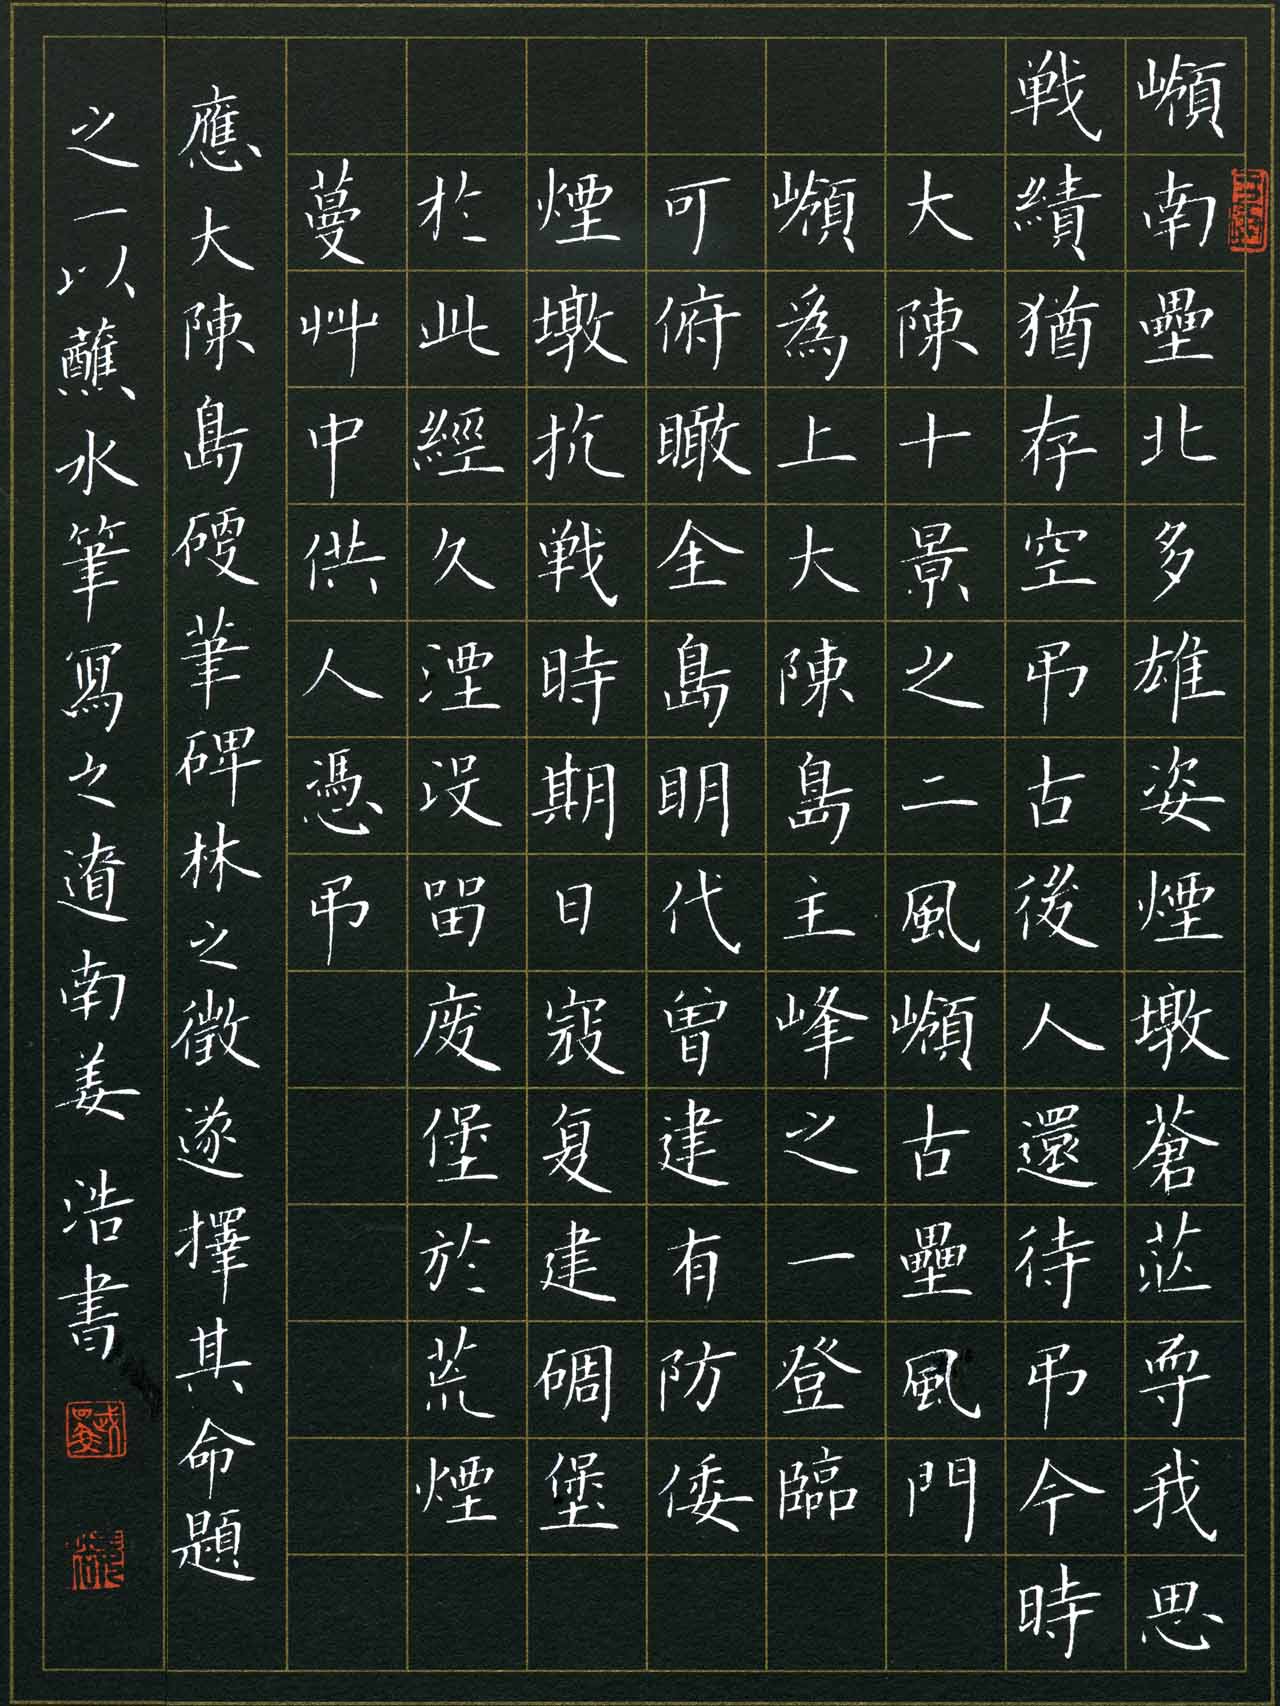 嶺南壘北多雄姿煙墩蒼茫寄我思
戦績猶存空弔古後人還待弔今時
大陳十景之二風嶺古壘風門
嶺為上大陳島主峰之一登臨
可俯瞰全島明代曾建有防倭
煙墩抗戦時期日寇复建碉堡
於此經久湮没留废堡於荒煙
蔓艸中供人憑弔
應大陳島硬筆碑林之徵遂擇其命題
之一以蘸水筆寫之 南姜浩書